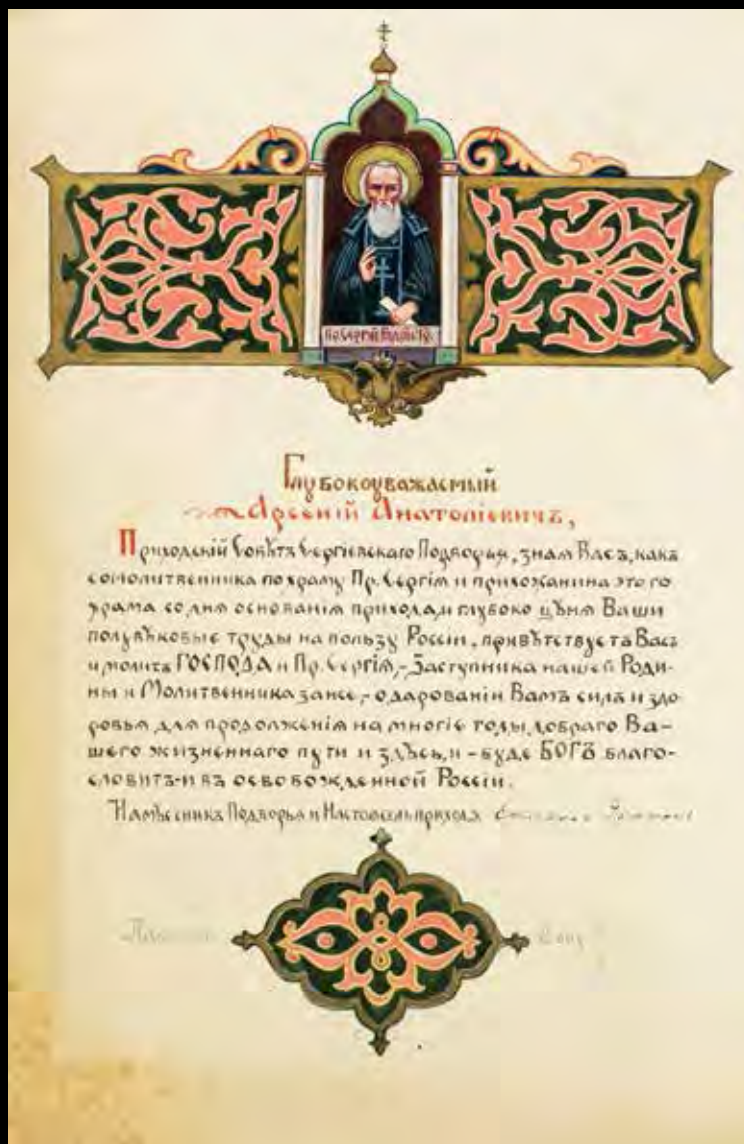 Глубокоуважаемый
Арсеній Анатоліевичъ,
Приходскій Совѣтъ Сергіевскаго Подворья, зная Васъ, какъ
сомолитвенника по храму Пр. Сергія и прихожанина этого
храма со дня основанія прихода, и глубоко цѣня Ваши
полувѣковые труды на пользу Россіи, привѣтствуетъ Васъ
и молитъ ГОСПОДА и Пр. Сергія,-Заступника нашей Роди-
ны и Молитвенника за нее,-о дарованіи Вамъ силъ и здо-
ровья для продолженія на многіе годы добраго Ва-
шего жизненнаго пути и здѣсь, и-буде БОГЪ благо-
словитъ-и въ освобожденной Россіи.
Намѣсникъ Подворья и Настоятель прихода